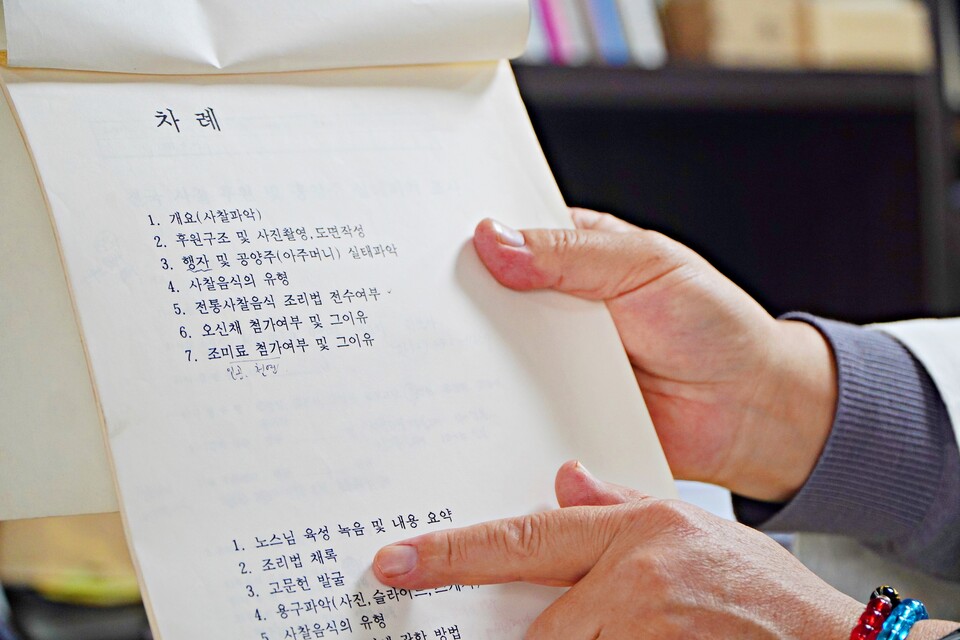 차 례
1. 개요(사찰파악)
2. 후원구조 및 사진촬영,도면작성
3. 행자 및 공양주(아주머니) 실태파악
4. 사찰음식의 유형
5. 전통사찰음식 조리법 전수여부
6. 오신채 첨가여부 및 그이유
7. 조미료 첨가여부 및 그이유
인공. 천연
1. 노스님 육성 녹음 및 내용 요약
2. 조리법 채록
3. 고문헌 발굴
4. 용구파악(사진,슬라이드,스케치)
5. 사찰음식의 유형
방법